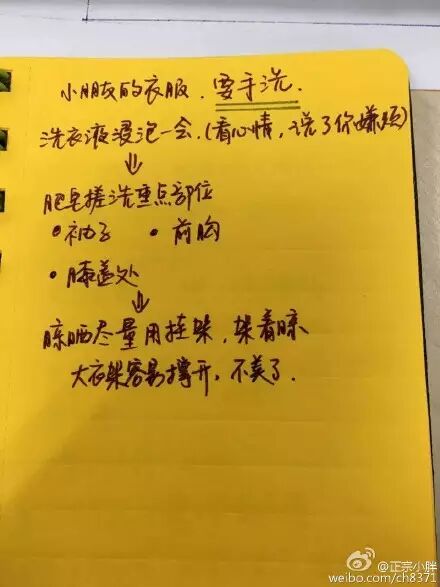 小朋友的衣服、要手洗.
洗衣液浸泡一会,(看心情,说了你嫌烦)
⇓
肥皂搓洗重点部位
•袖子 •前胸
•膝盖处
⇓
晾晒尽量用挂架,架着晾
大衣架容易撑开,不美了.
@正宗小胖
weibo.com/ch8371